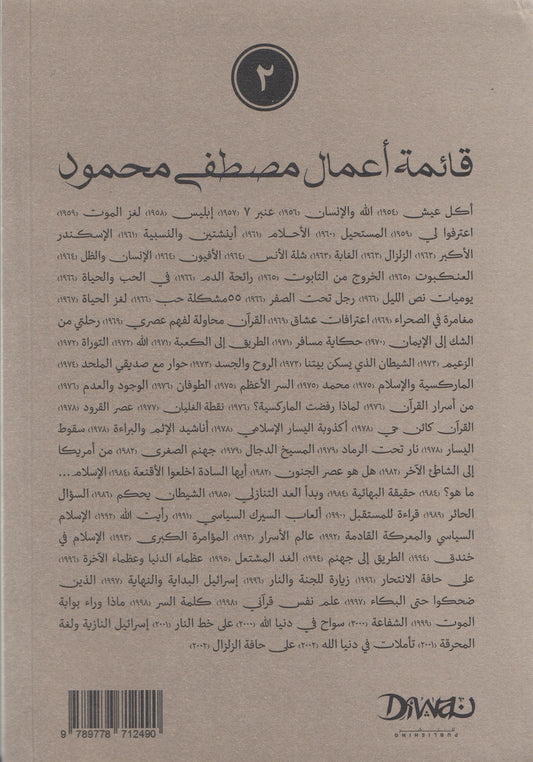 ٢
قائمة أعمال مصطفى محمود
أكل عيش (١٩٥٤) الله والإنسان (١٩٥٦) عنبر ٧ (١٩٥٧) إبليس (١٩٥٨) لغز الموت (١٩٥٩)
اعترفوا لي (١٩٥٩) المستحيل (١٩٦٠) الأحلام (١٩٦١) أينشتين والنسبية (١٩٦١) الإسكندر
الأكبر (١٩٦٣) الزلزال (١٩٦٣) الغابة (١٩٦٣) شلة الأنس (١٩٦٤) الأفيون (١٩٦٤) الإنسان والظل (١٩٦٤)
العنكبوت (١٩٦٥) الخروج من التابوت (١٩٦٥) رائحة الدم (١٩٦٦) في الحب والحياة (١٩٦٦)
يوميات نص الليل (١٩٦٦) رجل تحت الصفر (١٩٦٦) ٥٥ مشكلة حب (١٩٦٦) لغز الحياة (١٩٦٧)
مغامرة في الصحراء (١٩٦٩) اعترافات عشاق (١٩٦٩) القرآن محاولة لفهم عصري (١٩٦٩) رحلتي من
الشك إلى الإيمان (١٩٧٠) حكاية مسافر (١٩٧١) الطريق إلى الكعبة (١٩٧١) الله (١٩٧٢) التوراة (١٩٧٢)
الزعيم (١٩٧٣) الشيطان الذي يسكن بيتنا (١٩٧٣) الروح والجسد (١٩٧٣) حوار مع صديقي الملحد (١٩٧٤)
الماركسية والإسلام (١٩٧٥) محمد (١٩٧٥) السر الأعظم (١٩٧٥) الطوفان (١٩٧٦) الوجود والعدم (١٩٧٦)
من أسرار القرآن (١٩٧٦) لماذا رفضت الماركسية؟ (١٩٧٦) نقطة الغليان (١٩٧٧) عصر القرود (١٩٧٨)
القرآن كائن حي (١٩٧٨) أكذوبة اليسار الإسلامي (١٩٧٨) أناشيد الإثم والبراءة (١٩٧٨) سقوط
اليسار (١٩٧٨) نار تحت الرماد (١٩٧٩) المسيخ الدجال (١٩٧٩) جهنم الصغرى (١٩٨٢) من أمريكا
إلى الشاطئ الآخر (١٩٨٢) هل هو عصر الجنون (١٩٨٢) أيها السادة اخلعوا الأقنعة (١٩٨٤) الإسلام...
ما هو؟ (١٩٨٤) حقيقة البهائية (١٩٨٤) وبدأ العد التنازلي (١٩٨٥) الشيطان يحكم (١٩٨٦) السؤال
الحائر (١٩٨٩) قراءة للمستقبل (١٩٩٠) ألعاب السيرك السياسي (١٩٩١) رأيت الله (١٩٩٢) الإسلام
السياسي والمعركة القادمة (١٩٩٢) عالم الأسرار (١٩٩٢) المؤامرة الكبرى (١٩٩٣) الإسلام في
خندق (١٩٩٤) الطريق إلى جهنم (١٩٩٤) الغد المشتعل (١٩٩٥) عظماء الدنيا وعظماء الآخرة (١٩٩٦)
على حافة الانتحار (١٩٩٦) زيارة للجنة والنار (١٩٩٦) إسرائيل البداية والنهاية (١٩٩٧) الذين
ضحكوا حتى البكاء (١٩٩٧) علم نفس قرآني (١٩٩٨) كلمة السر (١٩٩٨) ماذا وراء بوابة
الموت (١٩٩٩) الشفاعة (٢٠٠٠) سواح في دنيا الله (٢٠٠٠) على خط النار (٢٠٠١) إسرائيل النازية ولغة
المحرقة (٢٠٠١) تأملات في دنيا الله (٢٠٠٢) على حافة الزلزال (٢٠٠٢)
9 789778 712490
Diwan
PUBLISHING